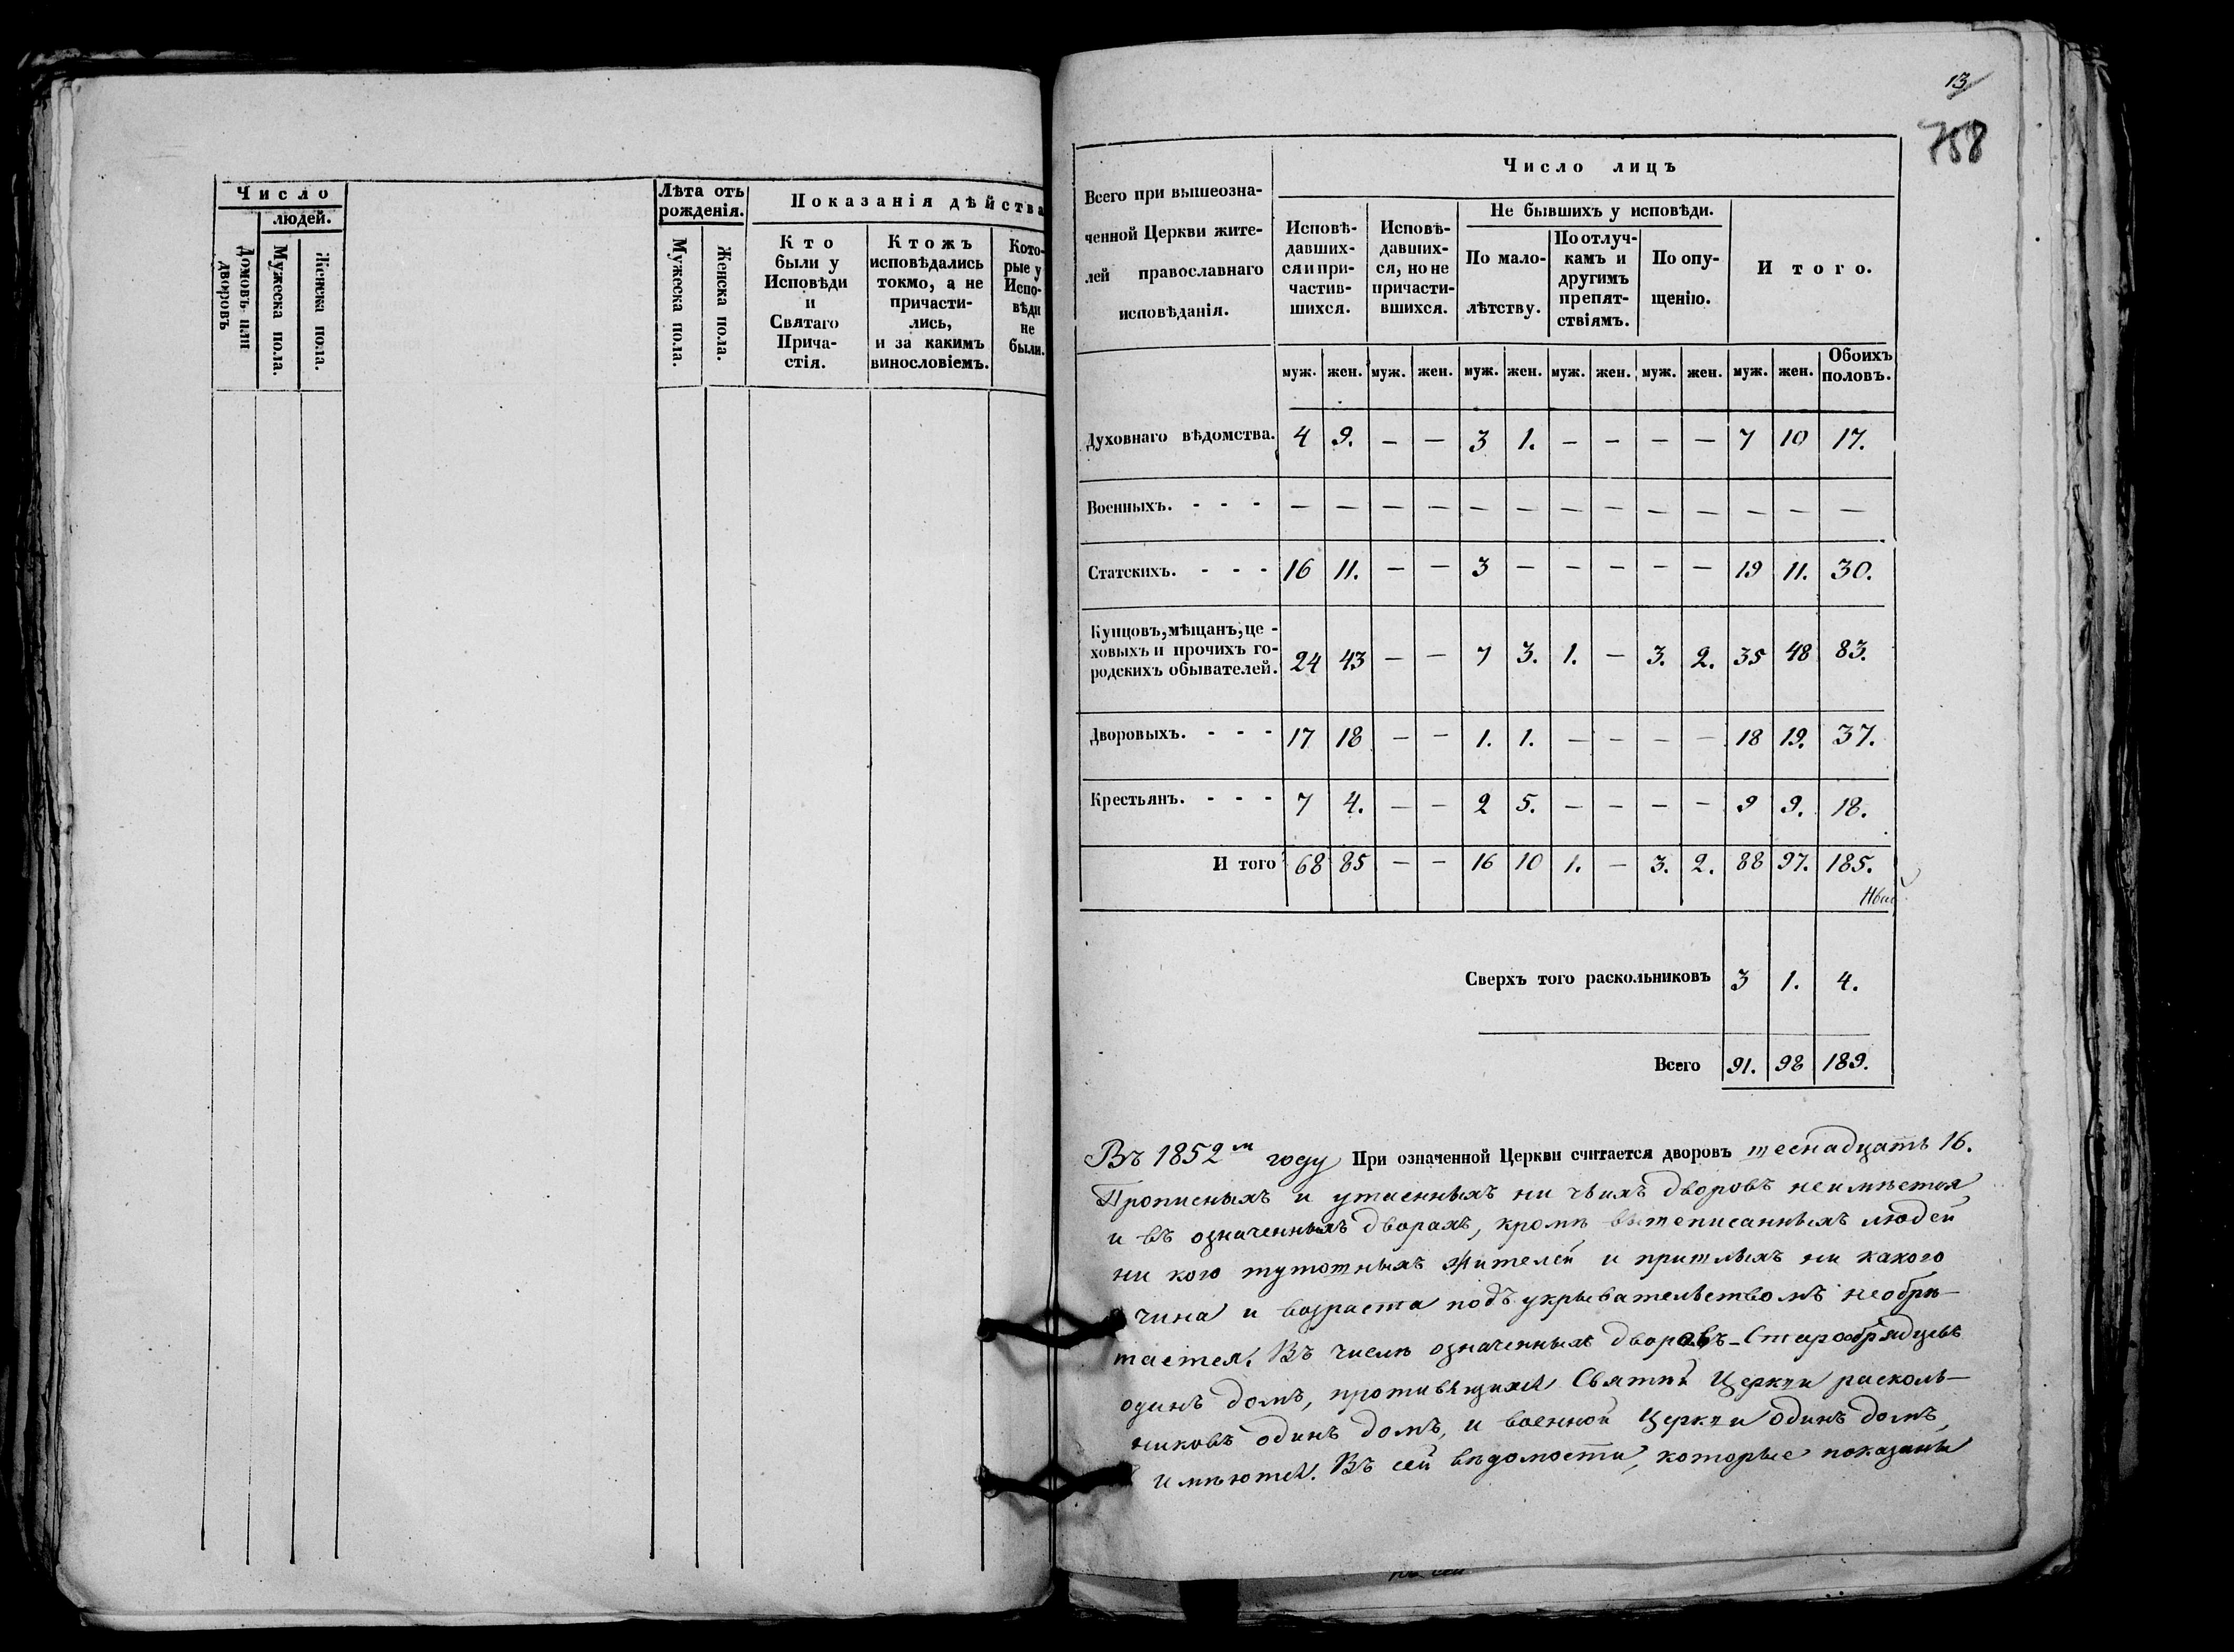 Число
людей.
Домовъ или дворовъ
Мужеска пола.
Женска пола.
Лѣта отъ рожденія.
Мужеска пола.
Женска пола.
Показанія дѣйства
Кто
были у
Исповѣди
и
Святаго
Прича-
стія.
Ктожъ
исповѣдались
токмо, а не
причасти-
лись,
и за какимъ
винословіемъ.
Кото-
рые у
Испо-
вѣди
не
были.
13
758
Всего при вышеозна-
ченной Церкви жите-
лей православнаго
исповѣданія.
Число лицъ
Исповѣ-
давших-
ся и при-
частив-
шихся.
Исповѣ-
давших-
ся, но не
причасти-
вшихся.
Не бывшихъ у исповѣди.
По мало-
лѣтству.
По отлуч-
камъ и
другимъ
препят-
ствіямъ.
По опу-
щенію.
И того.
муж. жен. муж. жен. муж. жен. муж. жен. муж. жен. муж. жен. Обоихъ половъ.
Духовнаго вѣдомства. 4 9. — — 3 1. — — — — 7 10 17.
Военныхъ. - - - — — — — — — — — — — — — —
Статскихъ. - - - 16 11. — — 3 — — — — — 19 11. 30.
Купцовъ, мѣщанъ, це-
ховыхъ и прочихъ го-
родскихъ обывателей. 24 43 — — 7 3. 1. — 3. 2. 35 48 83.
Дворовыхъ. - - - 17 18 — — 1. 1. — — — — 18 19. 37.
Крестьянъ. - - - 7 4. — — 2 5. — — — — 9 9. 18.
И того 68 85 — — 16 10 1. — 3. 2. 88 97. 185.
Сверхъ того раскольниковъ 3 1. 4.
Всего 91. 98 189.
Въ 1852м году При означенной Церкви считается дворовъ шеснадцать 16.
Прописныхъ и утаенныхъ ни чьихъ дворовъ неимѣется
и въ означенныхъ дворахъ, кромѣ вышеписанныхъ людей
ни кого тутошныхъ жителей и пришлыхъ ни какого
чина и возраста подъ укрывательствомъ необрѣ-
тается. Въ числѣ означенныхъ дворовъ - Старообрядцевъ
одинъ домъ, противящихся Святѣй Церкви расколь-
никовъ одинъ домъ, и военной Церкви одинъ домъ,
имѣются. Въ сей вѣдомости, которые показаны